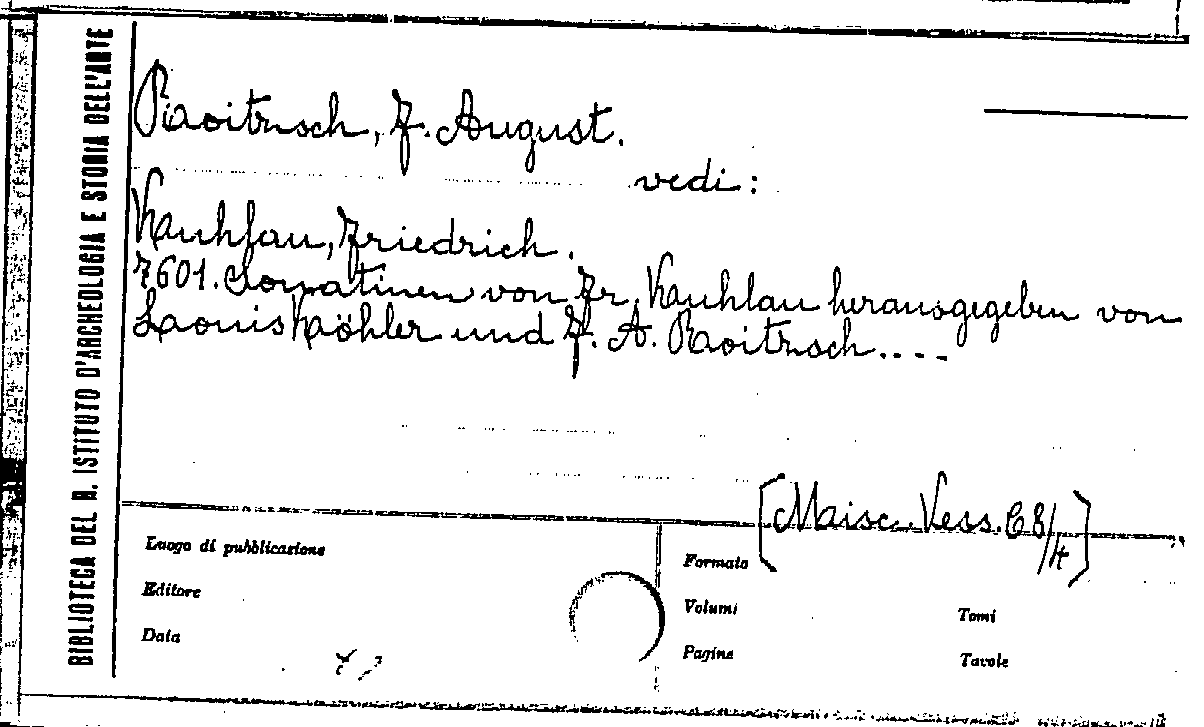 BIBLIOTECA DEL R. ISTITUTO D'ARCHEOLOGIA E STORIA DELL'ARTE
Roitzsch, F. August.
vedi:
Kuhlau, Friedrich.
7601. Sonatinen von Fr. Kuhlau herausgegeben von
Louis Köhler und F. A. Roitzsch....
[Misc. Vess. C8/4]
Luogo di pubblicazione
Editore
Data
Formato
Volumi
Pagine
Tomi
Tavole